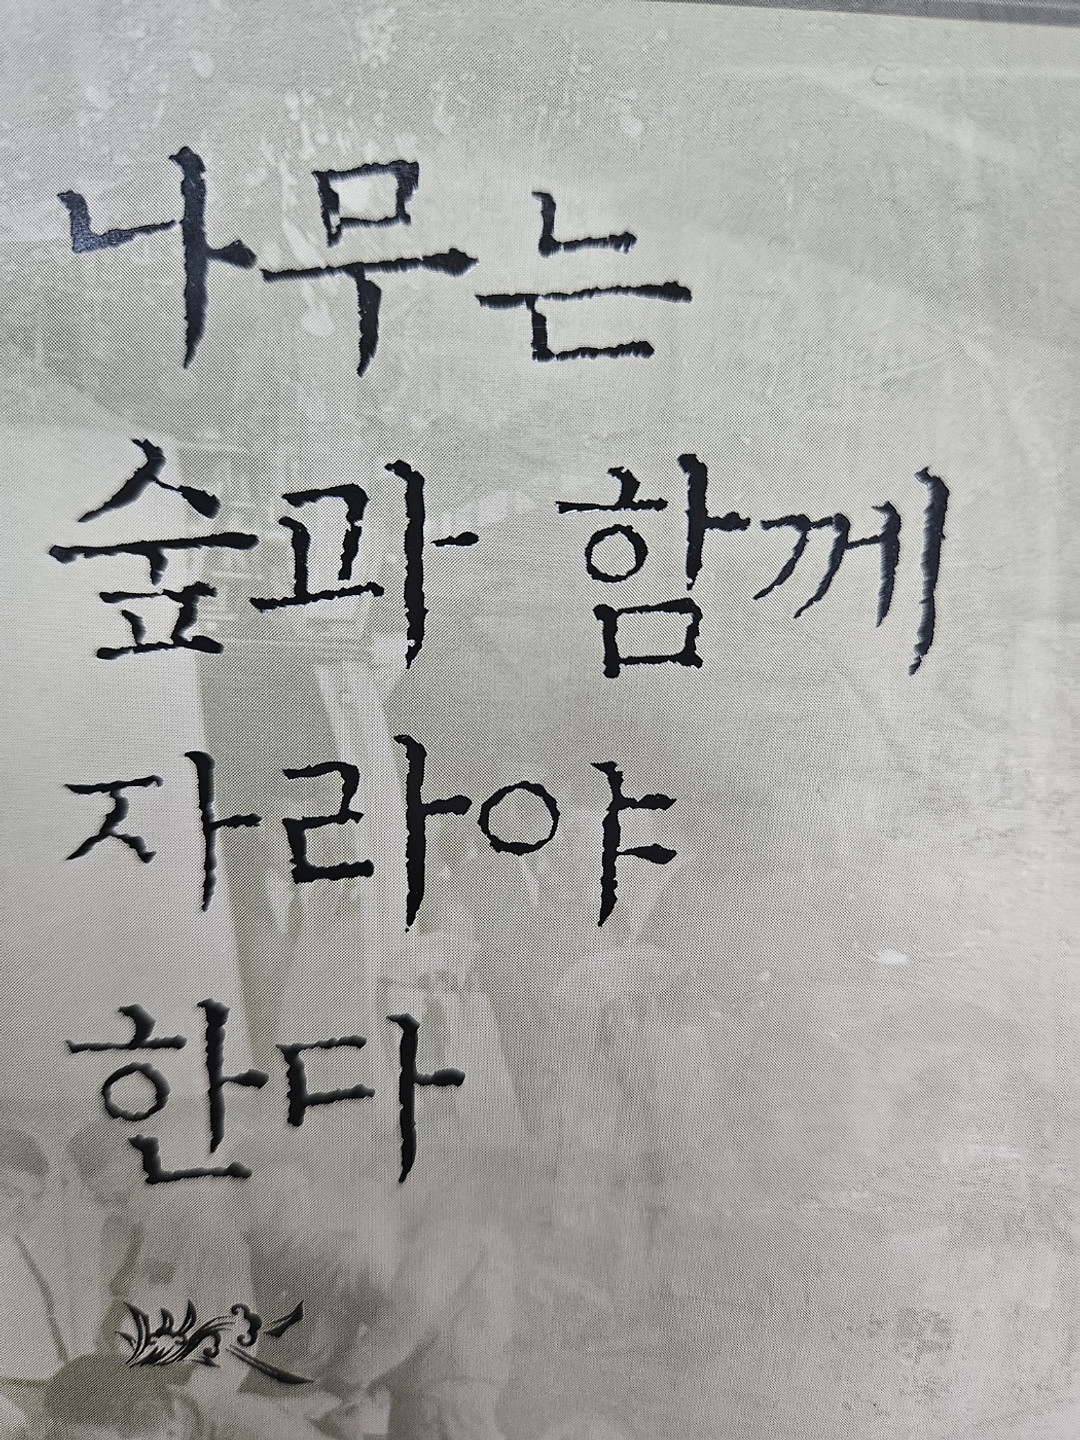 나무는
숲과 함께
자라야
한다